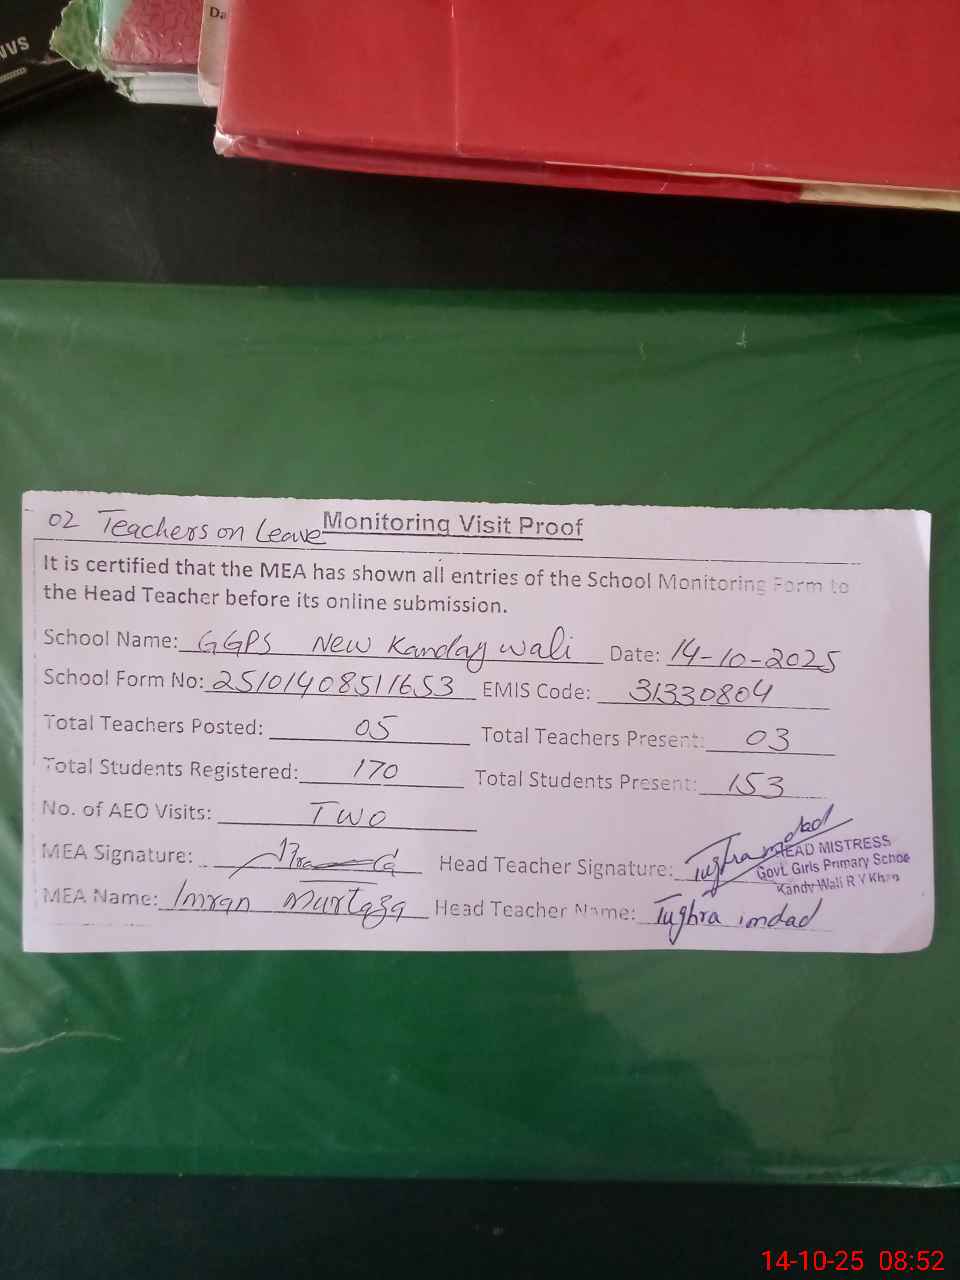 Da
02 Teachers on Leave Monitoring Visit Proof
It is certified that the MEA has shown all entries of the School Monitoring Form to
the Head Teacher before its online submission.
School Name: GGPS New Kanday wali Date: 14-10-2025
School Form No: 25101408511653 EMIS Code: 31330804
Total Teachers Posted: 05 Total Teachers Present: 03
Total Students Registered: 170 Total Students Present: 153
No. of AEO Visits: Two
MEA Signature: Head Teacher Signature: Tughra imdad
HEAD MISTRESS
Govt. Girls Primary School
Kandy Wali R Y Khan
MEA Name: Imran Murtaza Head Teacher Name: Tughra imdad
14-10-25 08:52